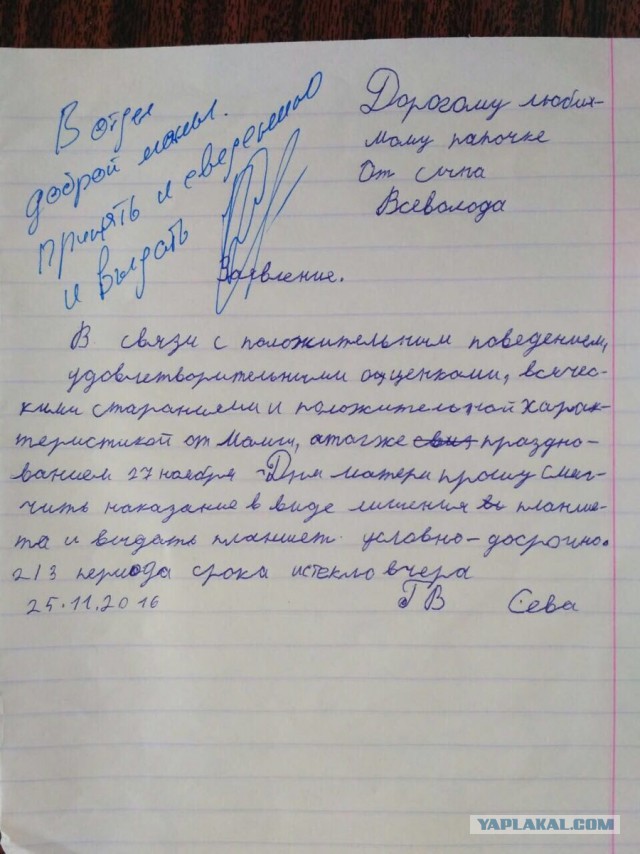 В отдел
доброй мамы.
принять к сведенью
и выдать
Дорогому любим-
мому папочке
От сына
Всеволода
Заявление.
В связи с положительним поведением,
удовлетворительними оценками, всячес-
кими стараниями и положительной харак-
теристикой от Мамы, а также праздно-
ванием 27 ноября - Дня матери прошу смяг-
чить наказание в виде лишения планше-
та и выдать планшет условно-досрочно.
2/3 периода срока истекло вчера
25.11.2016 ГВ Сева
YAPLAKAL.COM